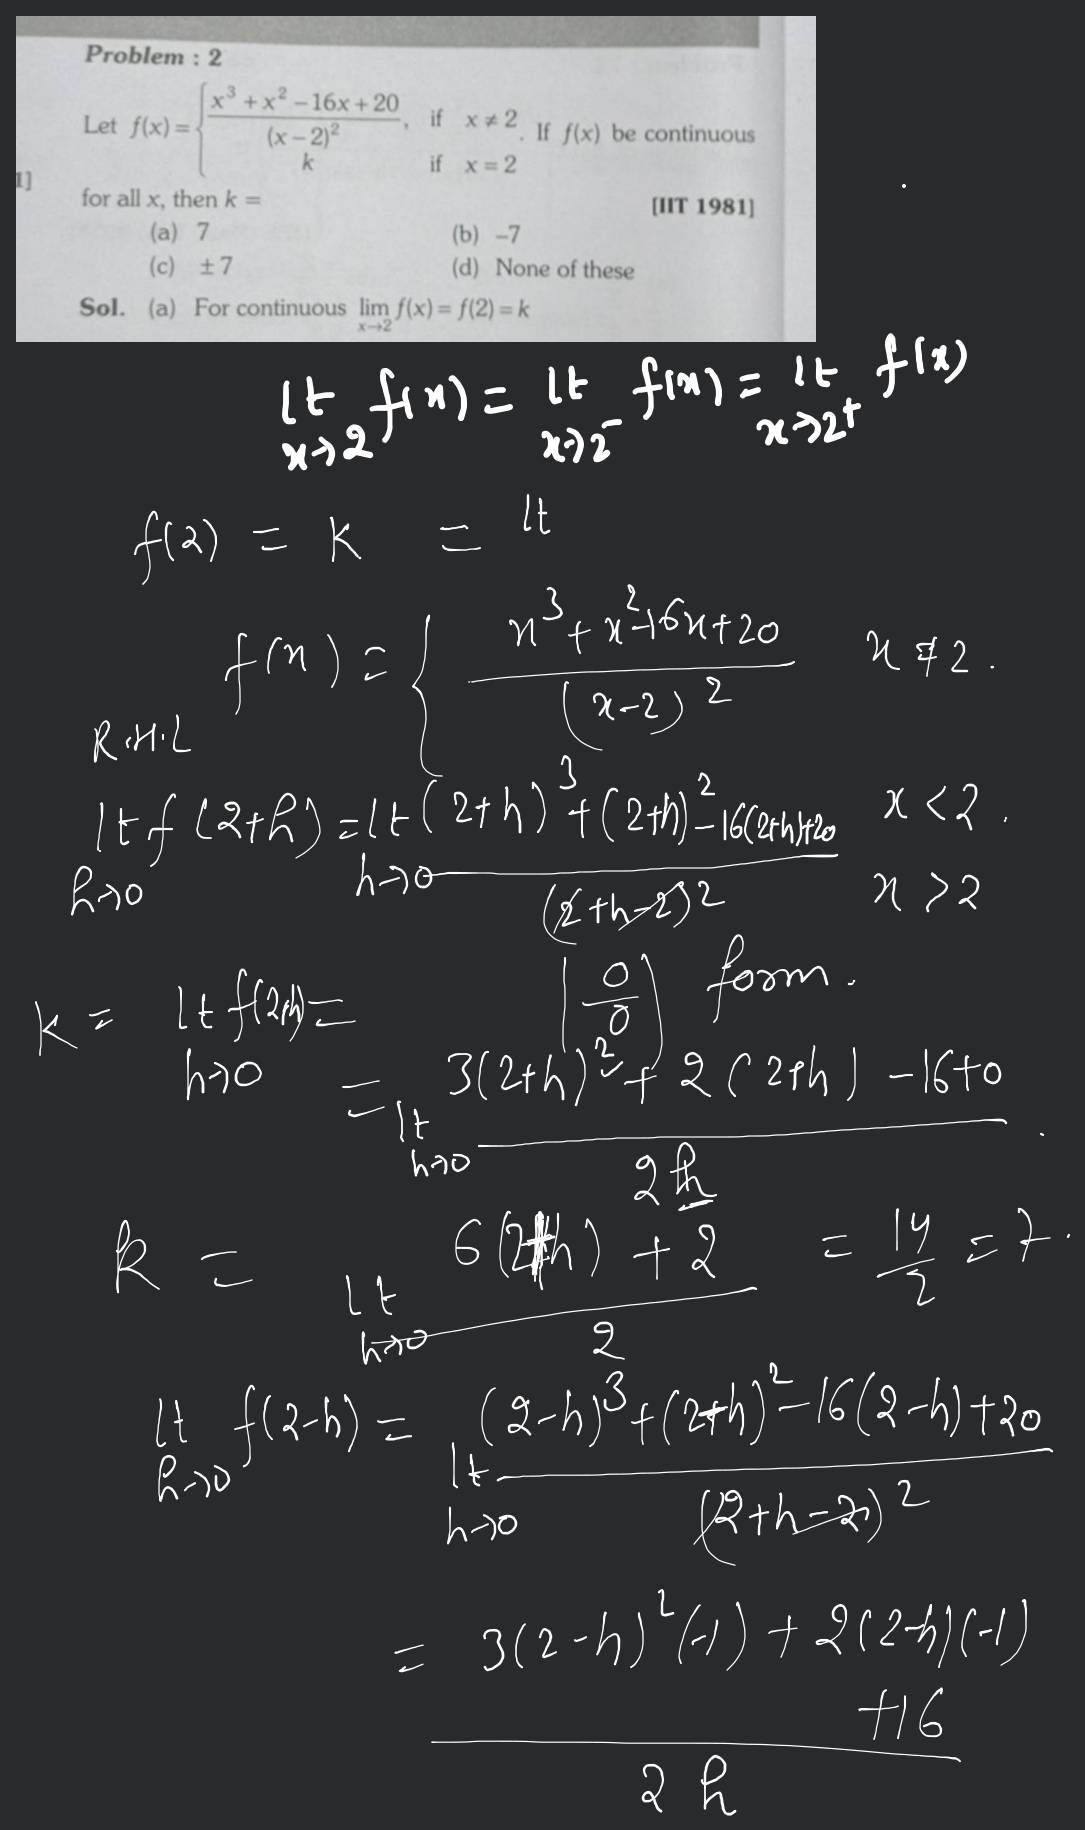 Problem : 2
Let f(x) = { x³ + x² – 16x + 20 / (x – 2)² , if x ≠ 2
k if x = 2 . If f(x) be continuous
1]
for all x, then k = [IIT 1981]
(a) 7 (b) –7
(c) ±7 (d) None of these
Sol. (a) For continuous lim x→2 f(x) = f(2) = k
lt x→2 f(x) = lt x→2⁻ f(x) = lt x→2⁺ f(x)
f(2) = k = lt
f(x) = { x³ + x² - 16x + 20 / (x-2)² x ≠ 2.
R.H.L
lt h→0 f(2+h) = lt h→0 (2+h)³ + (2+h)² - 16(2+h)+20 / (2+h-2)² x < 2.
x > 2
k = lt h→0 f(2+h) = (0/0) form.
= lt h→0 3(2+h)² + 2(2+h) - 16+0 / 2h
k = lt h→0 6(2+h) + 2 / 2 = 14/2 = 7.
lt h→0 f(2-h) = lt h→0 (2-h)³ + (2+h)² - 16(2-h) + 20 / (2+h-2)²
= 3(2-h)²(-1) + 2(2-h)(-1)
+16
/ 2h